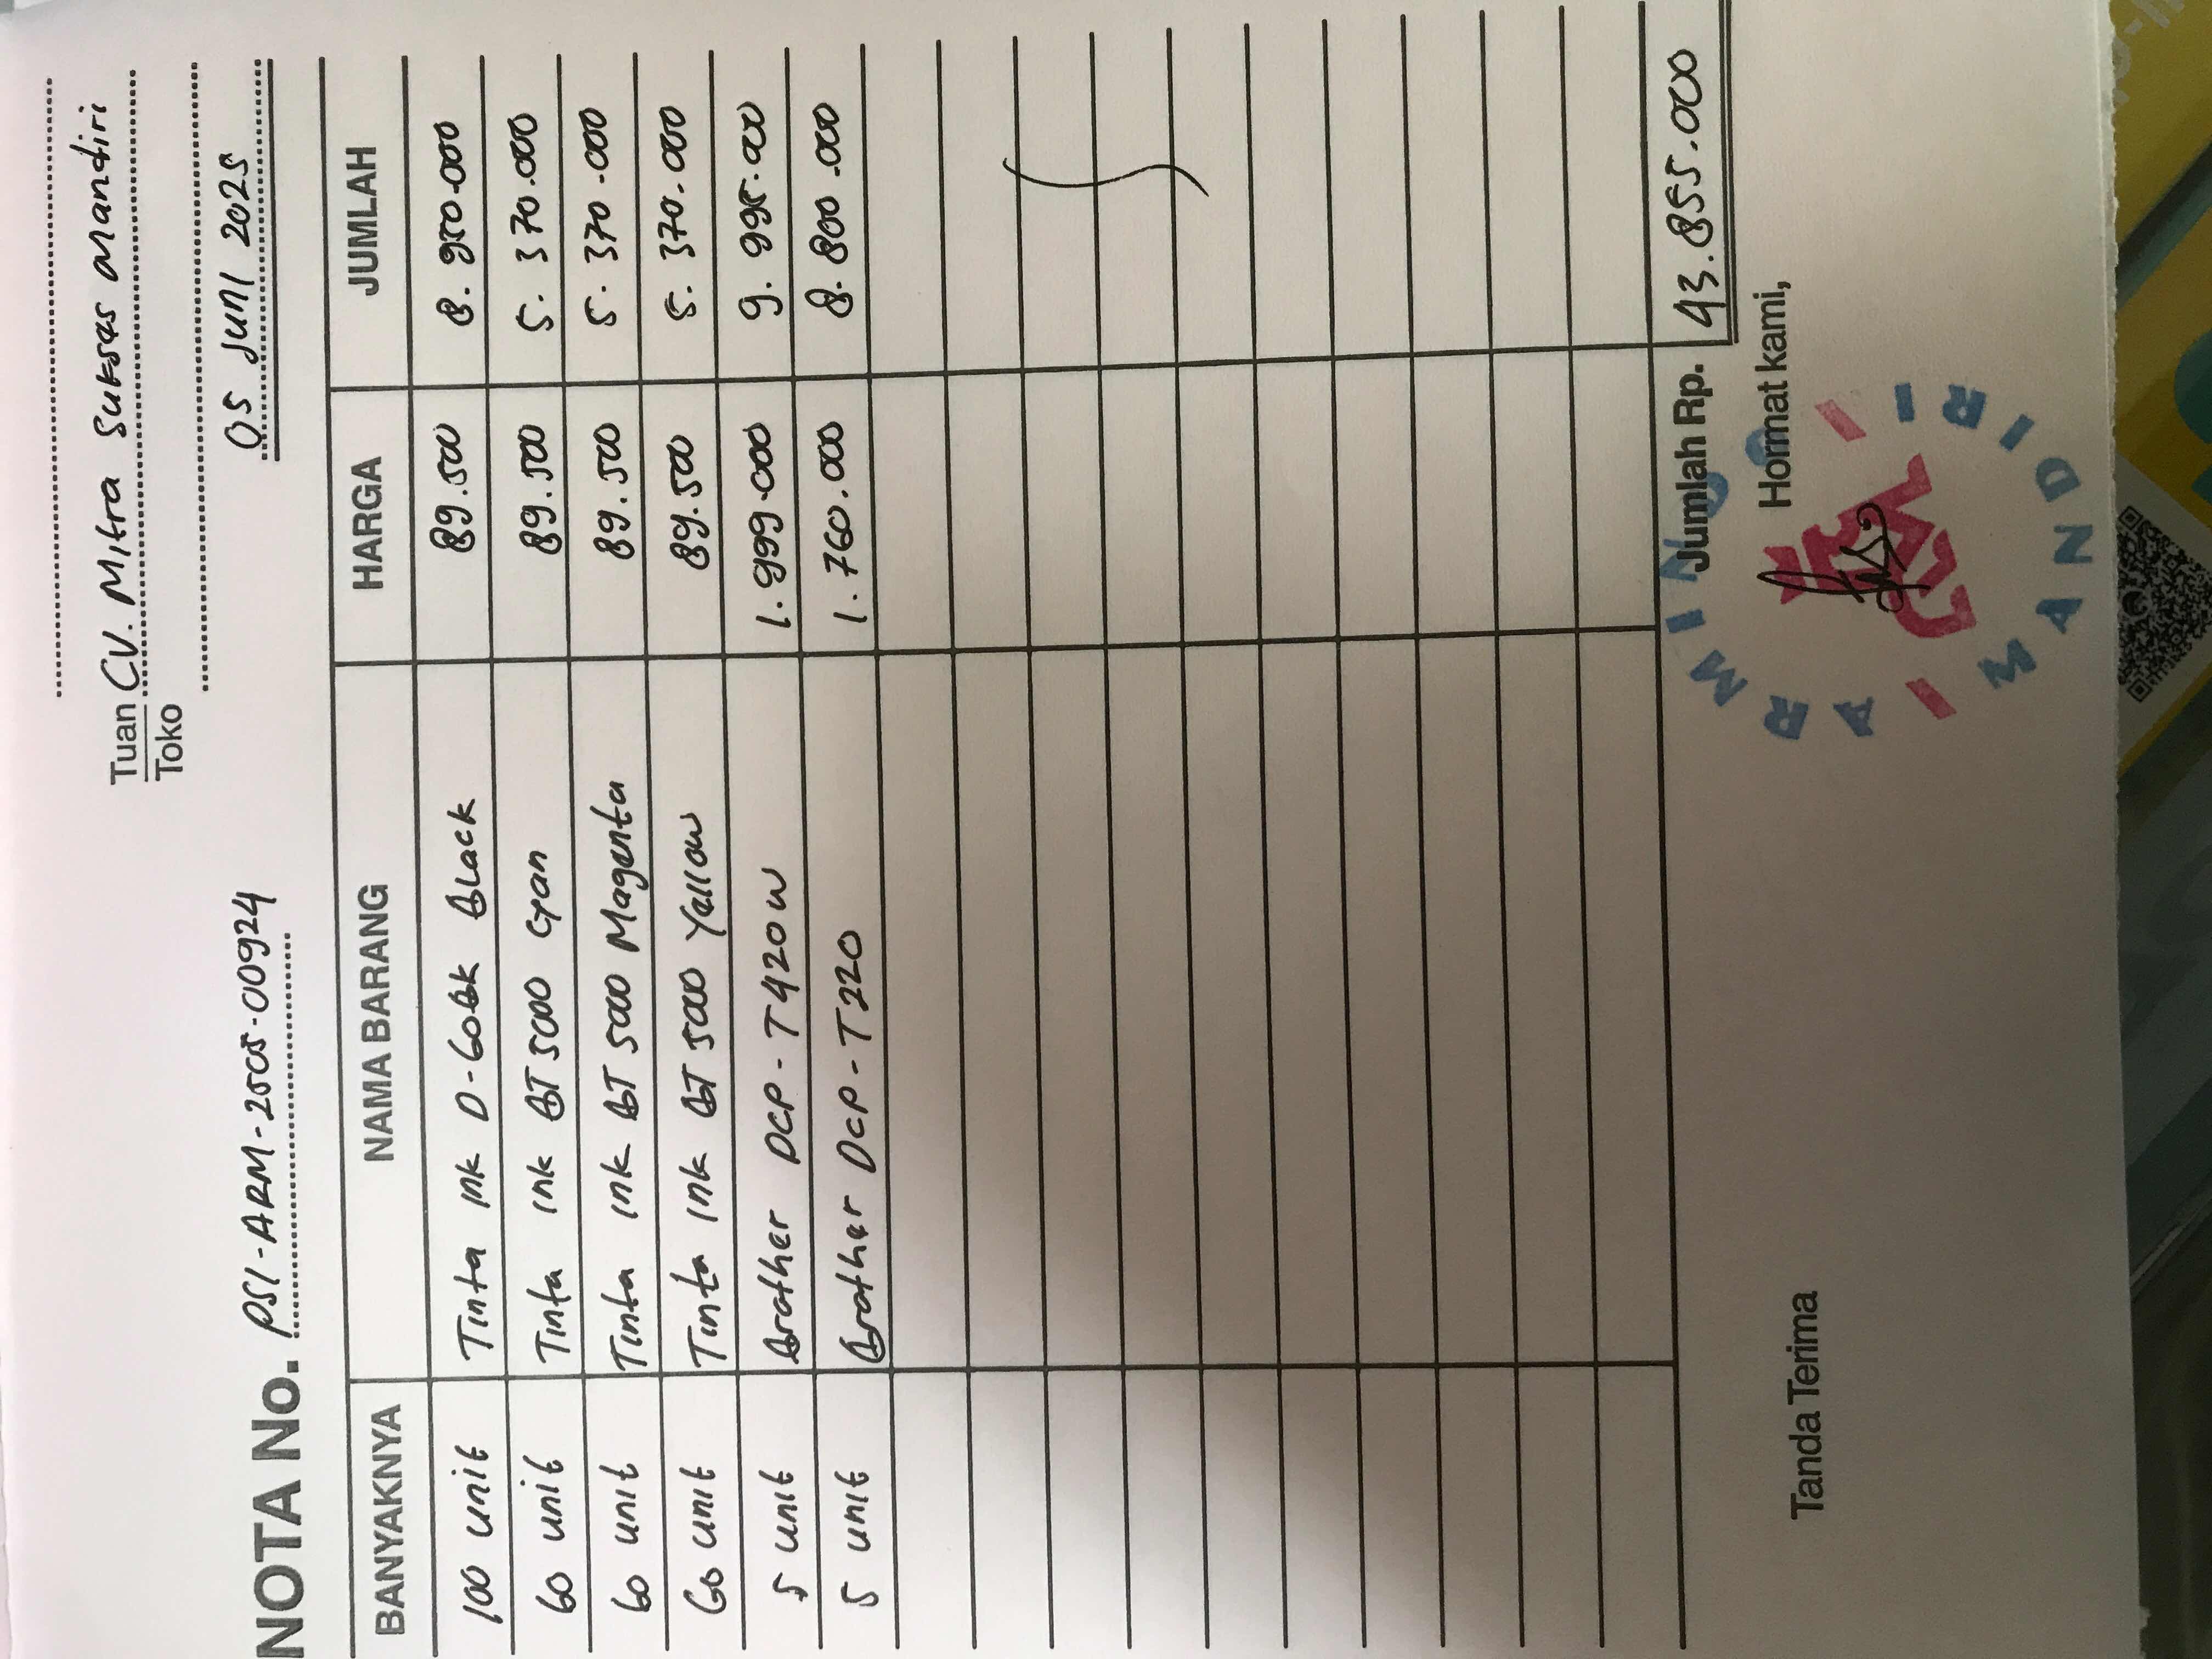 Tuan CV. Mitra Sukses Mandiri
Toko
05 Juni 2025
NOTA No. PSI-ARM-2505-00924
BANYAKNYA NAMA BARANG HARGA JUMLAH
100 unit Tinta Ink D-60BK Black 89.500 8.950.000
60 unit Tinta Ink BT 5000 Cyan 89.500 5.370.000
60 unit Tinta Ink BT 5000 Magenta 89.500 5.370.000
60 unit Tinta Ink BT 5000 Yellow 89.500 5.370.000
5 unit Brother DCP-T420W 1.999.000 9.995.000
5 unit Brother DCP-T220 1.760.000 8.800.000
Jumlah Rp. 43.855.000
Tanda Terima Hormat kami,
MANDIRI